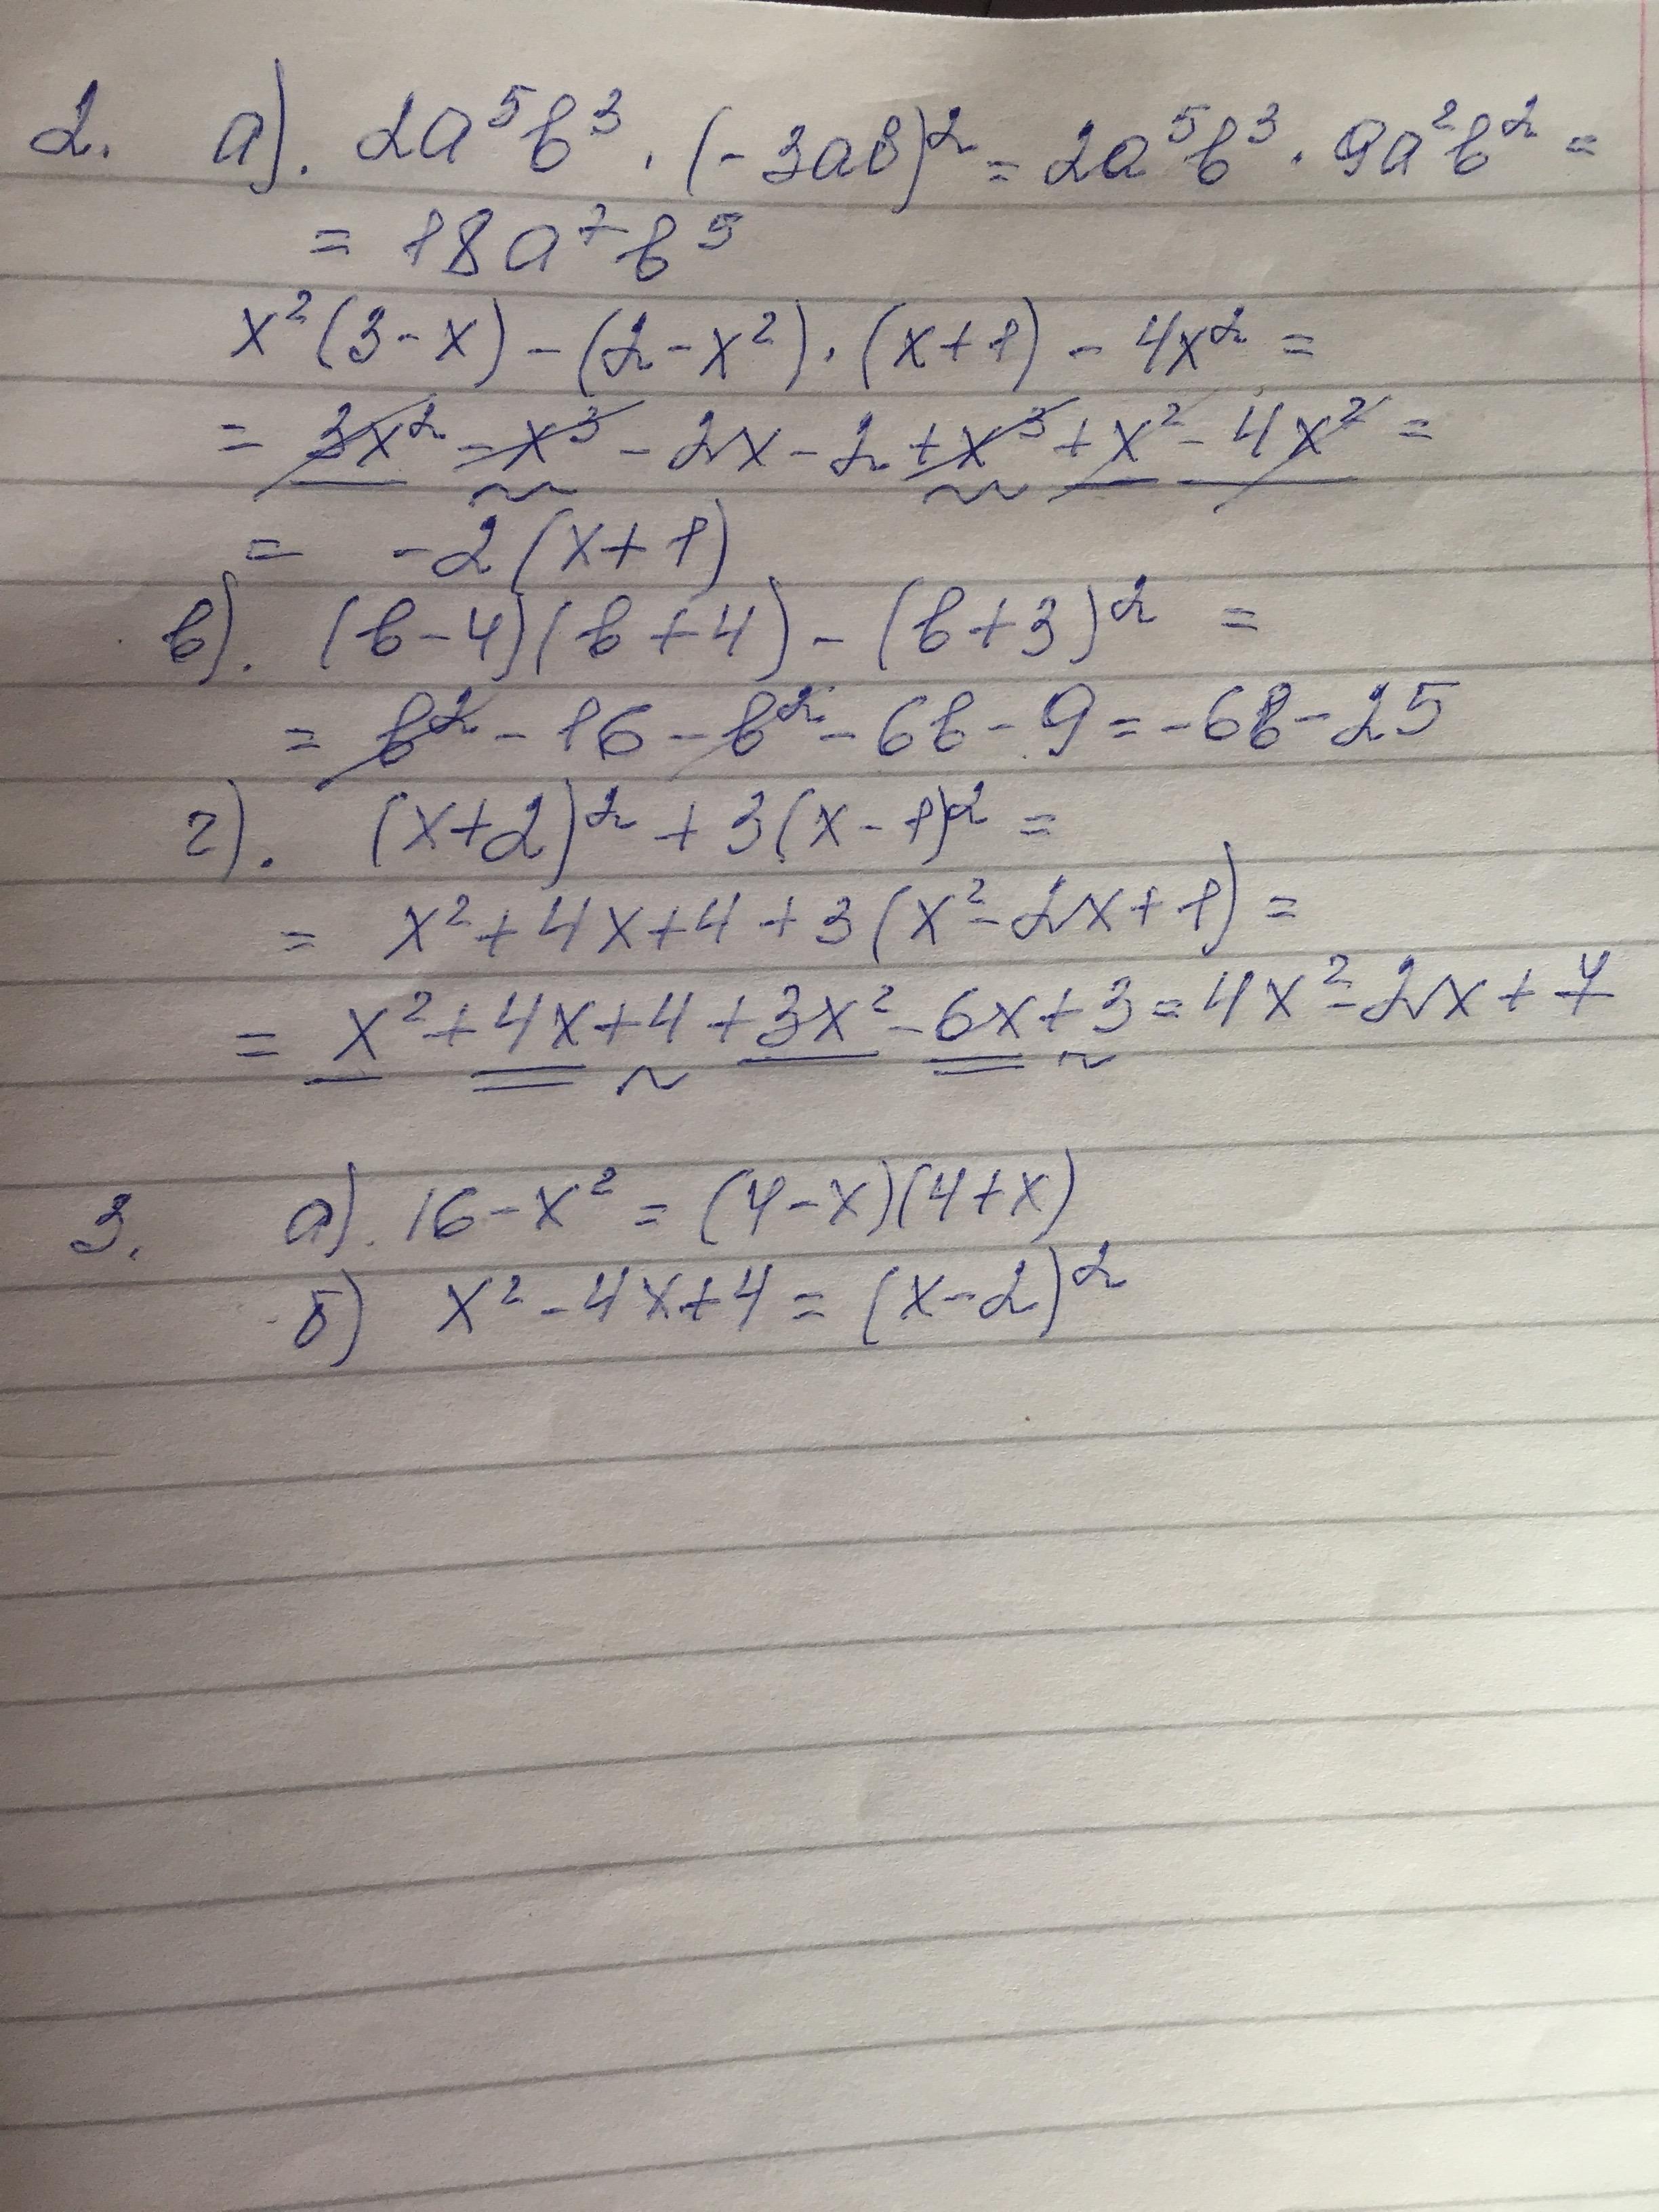 2. а). 2a⁵b³ · (-3ab)² = 2a⁵b³ · 9a²b² =
= 18a⁷b⁵
x²(3-x) - (2-x²) · (x+1) - 4x² =
= 3x² - x³ - 2x - 2 + x³ + x² - 4x² =
= -2(x+1)
в). (b-4)(b+4) - (b+3)² =
= b² - 16 - b² - 6b - 9 = -6b - 25
г). (x+2)² + 3(x-1)² =
= x² + 4x + 4 + 3(x² - 2x + 1) =
= x² + 4x + 4 + 3x² - 6x + 3 = 4x² - 2x + 7
3. а). 16 - x² = (4-x)(4+x)
б) x² - 4x + 4 = (x-2)²